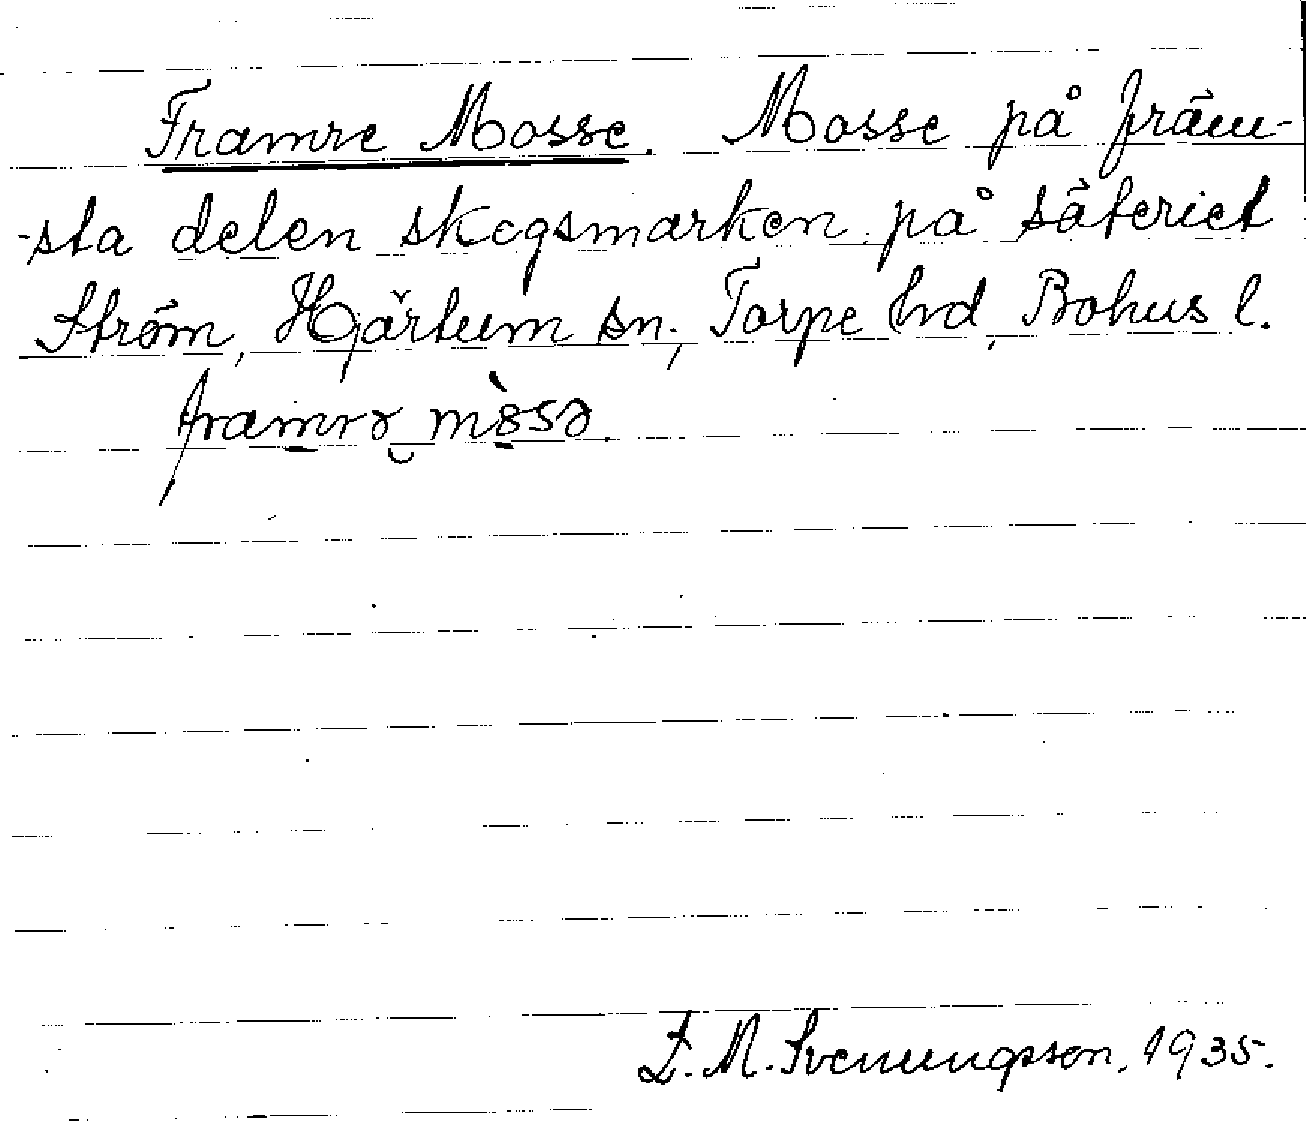 Framre Mosse. Mosse på främ-
-sta delen skogsmarken på säteriet
Ström, Hjärtum sn., Torpe hd, Bohus l.
framrə
Z. M. Svenungsson. 1935.